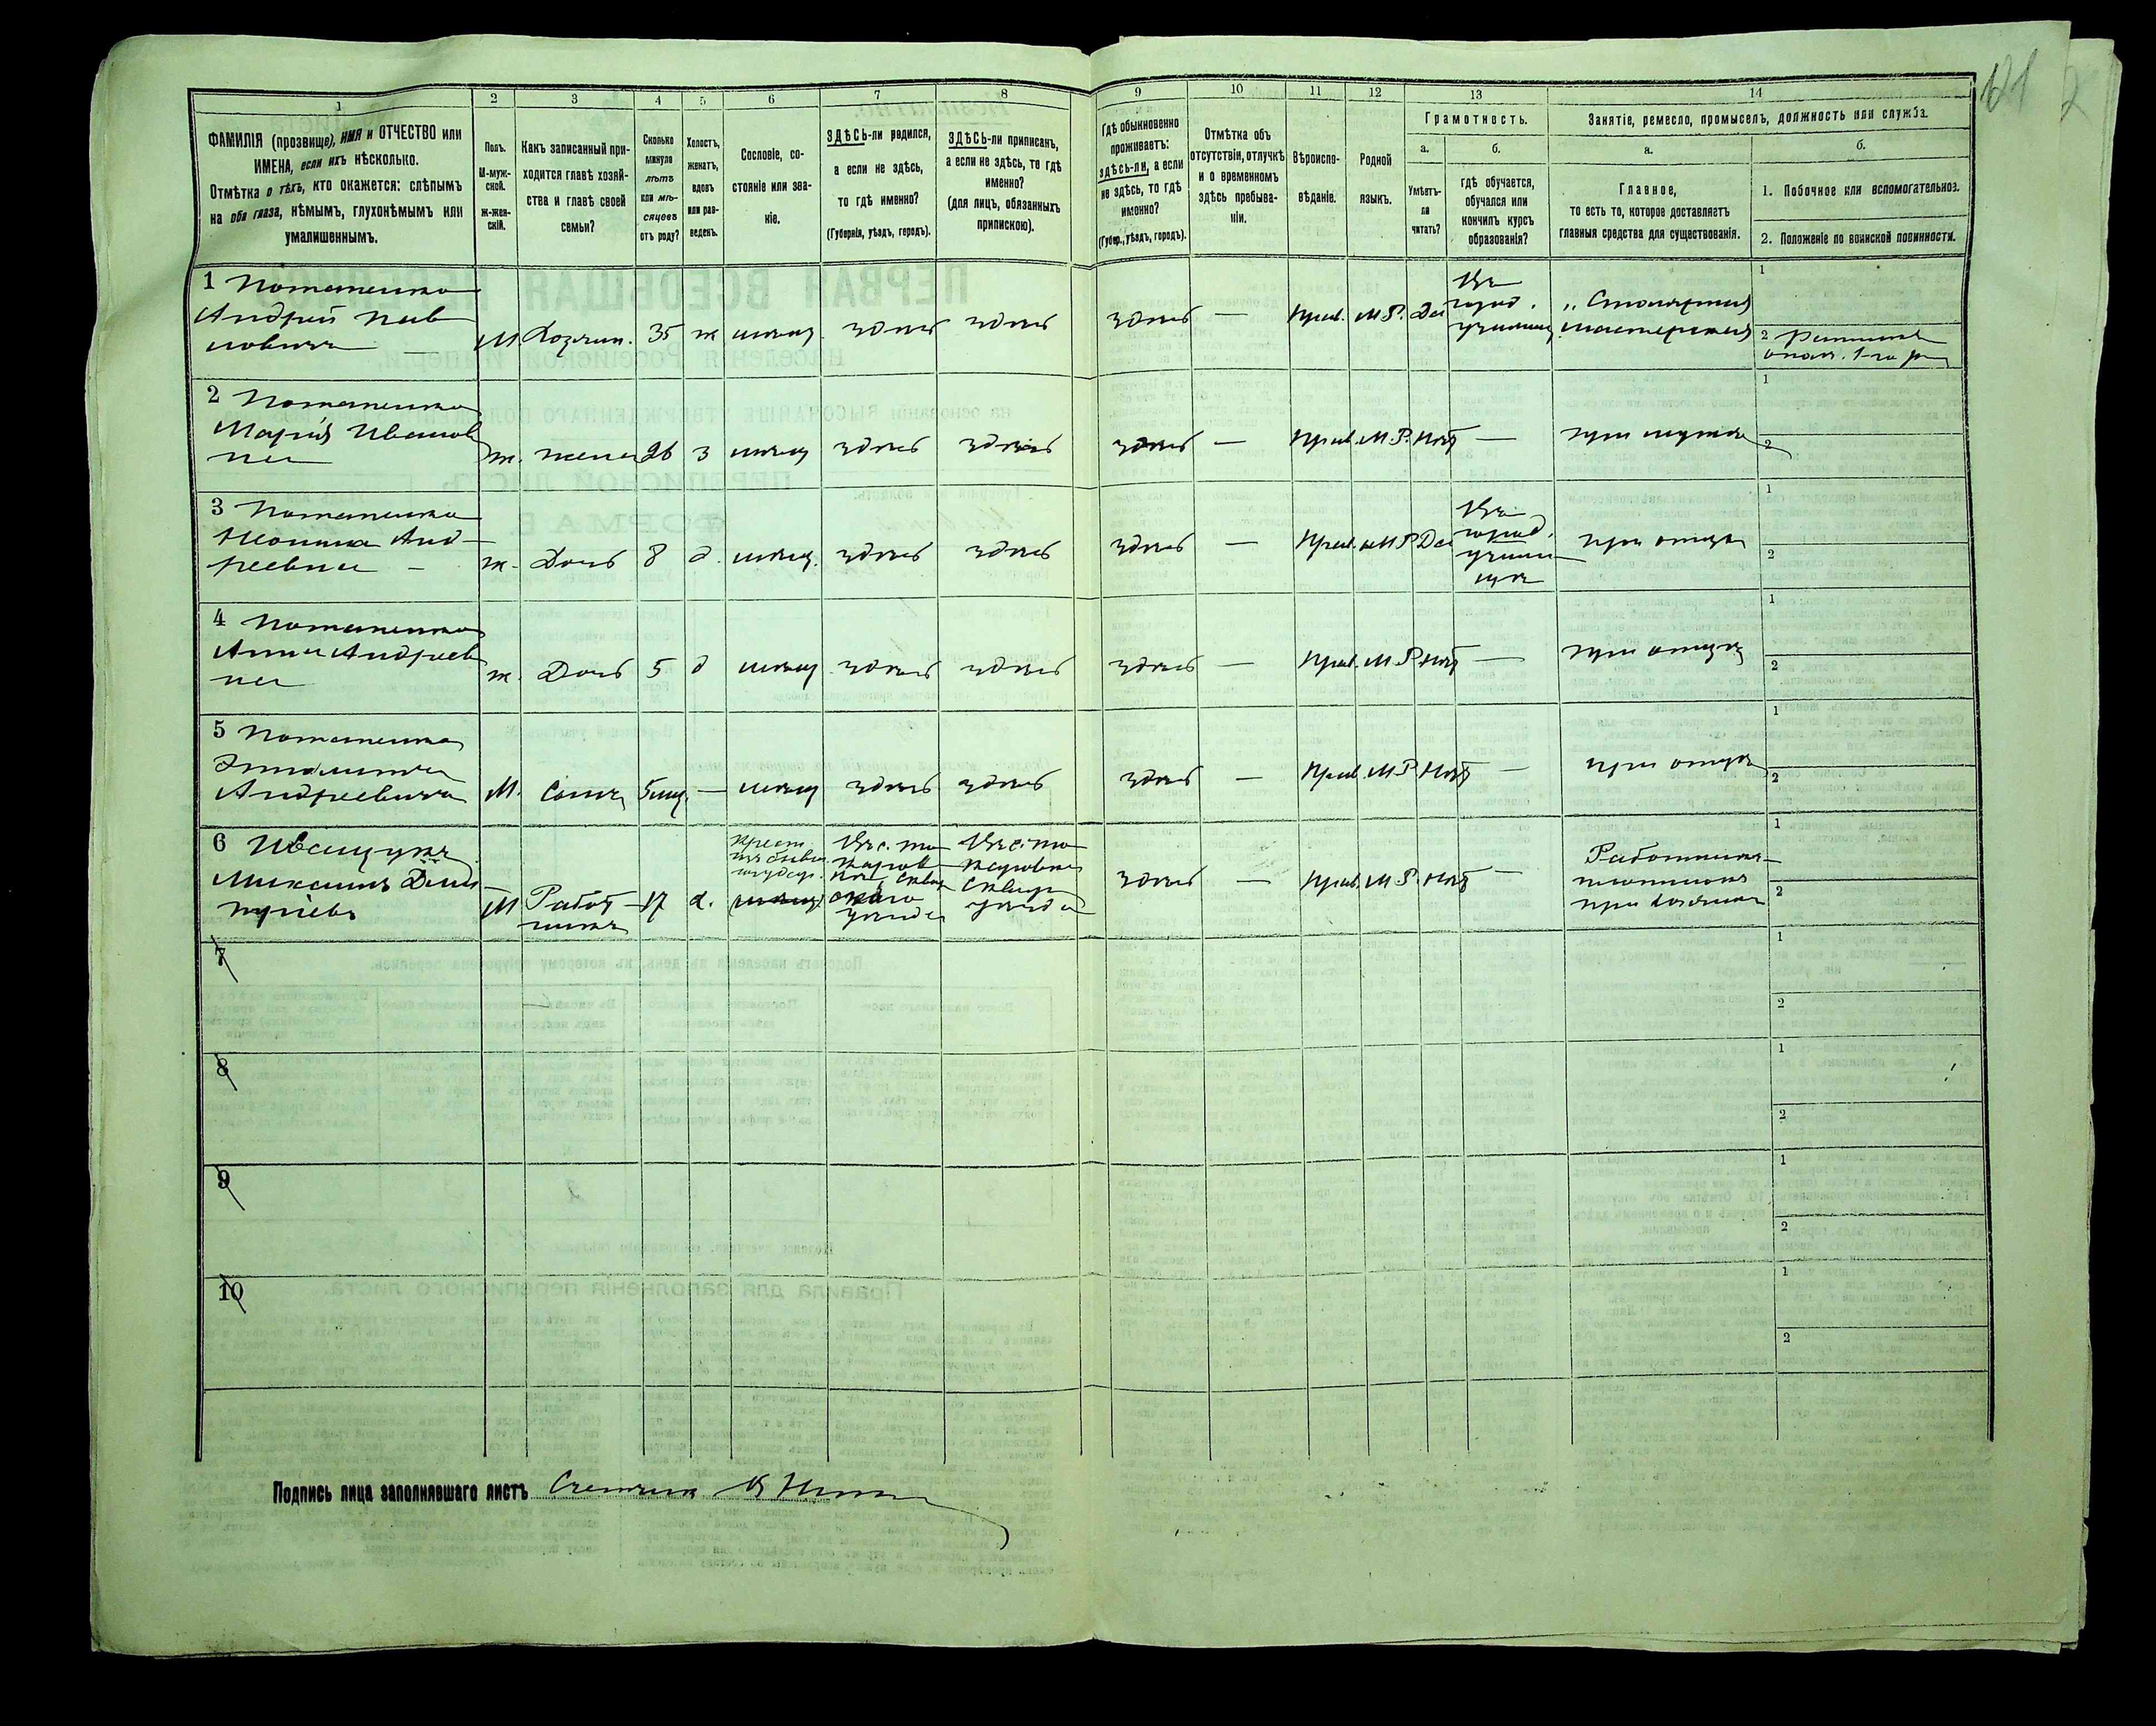 121
1 2 3 4 5 6 7 8 9 10 11 12 13 14
ФАМИЛІЯ (прозвище), ИМЯ и ОТЧЕСТВО или
ИМЕНА, если ихъ нѣсколько.
Отмѣтка о тѣхъ, кто окажется: слѣпымъ
на оба глаза, нѣмымъ, глухонѣмымъ или
умалишеннымъ.
Полъ.
М-муж-
ской.
ж-жен-
скій.
Какъ записанный при-
ходится главѣ хозяй-
ства и главѣ своей
семьи?
Сколько
минуло
лѣтъ
или мѣ-
сяцевъ
отъ роду?
Холостъ,
женатъ,
вдовъ
или раз-
веденъ.
Сословіе, со-
стояніе или зва-
ніе.
ЗДѢСЬ-ли родился,
а если не здѣсь,
то гдѣ именно?
(Губернія, уѣздъ, городъ).
ЗДѢСЬ-ли приписанъ,
а если не здѣсь, то гдѣ
именно?
(для лицъ, обязанныхъ
припискою).
Гдѣ обыкновенно
проживаетъ:
здѣсь-ли, а если
не здѣсь, то гдѣ
именно?
(Губер., уѣздъ, городъ).
Отмѣтка объ
отсутствіи, отлучкѣ
и о временномъ
здѣсь пребыва-
ніи.
Вѣроиспо-
вѣданіе.
Родной
языкъ.
Грамотность.
а.
Умѣетъ-
ли
читать?
б.
гдѣ обучается,
обучался или
кончилъ курсъ
образованія?
Занятіе, ремесло, промыселъ, должность или служба.
а.
Главное,
то есть то, которое доставляетъ
главныя средства для существованія.
б.
1. Побочное или вспомогательное.
2. Положеніе по воинской повинности.
1 Потапенко
Андрей Пав
ловичъ
М. Хозяин. 35 ж мѣщ. здѣсь здѣсь здѣсь — Прав. М.Р. Да
Въ
город.
училищ
Столярная
мастерская
1
2 Ратникъ
опол. 1-го р
2 Потапенко
Марія Иванов
на
ж. жена 26 з мѣщ здѣсь здѣсь здѣсь — Прав. М.Р. Нѣт — при мужѣ
1
2
3 Потапенко
Леонила Анд-
реевна —
ж. Дочь 8 д. мѣщ. здѣсь здѣсь здѣсь — Прав. М.Р. Да
Въ
город.
учили
щѣ
при отцѣ
1
2
4 Потапенко
Анна Андреев
на
ж. Дочь 5 д мѣщ здѣсь здѣсь здѣсь — Прав. М.Р. Нѣт — при отцѣ
1
2
5 Потапенко
Андреевичъ
М. Сынъ 5 мц. — мѣщ здѣсь здѣсь здѣсь — Прав. М.Р. Нѣт — при отцѣ
1
2
6 Иващукъ
Максимъ Дми-
тріевъ
М Работ-
никъ
17 х.
крест.
изъ бывш.
государ.
мѣщ
Сквир
скаго
уѣзда
Сквир
уѣзда
здѣсь — Прав. М.Р. Нѣт —
Работникъ-
при хозяинѣ
1
2
7
1
2
8
1
2
9
1
2
10
1
2
Подпись лица заполнявшаго листъ Счетчикъ